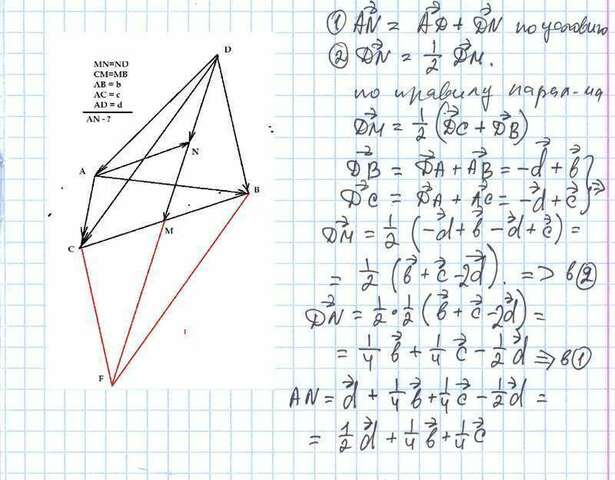 D
MN=ND
CM=MB
AB = b
AC = c
AD = d
AN - ?
A
N
B
C
M
F
① AN = AD + DN по условию
② DN = 1/2 DM.
по правилу парал-ма
DM = 1/2 (DC + DB)
DB = DA + AB = -d + b
DC = DA + AC = -d + c } =>
DM = 1/2 (-d + b - d + c) =
= 1/2 (b + c - 2d). => в ②
DN = 1/2 · 1/2 (b + c - 2d) =
= 1/4 b + 1/4 c - 1/2 d => в ①
AN = d + 1/4 b + 1/4 c - 1/2 d =
= 1/2 d + 1/4 b + 1/4 c